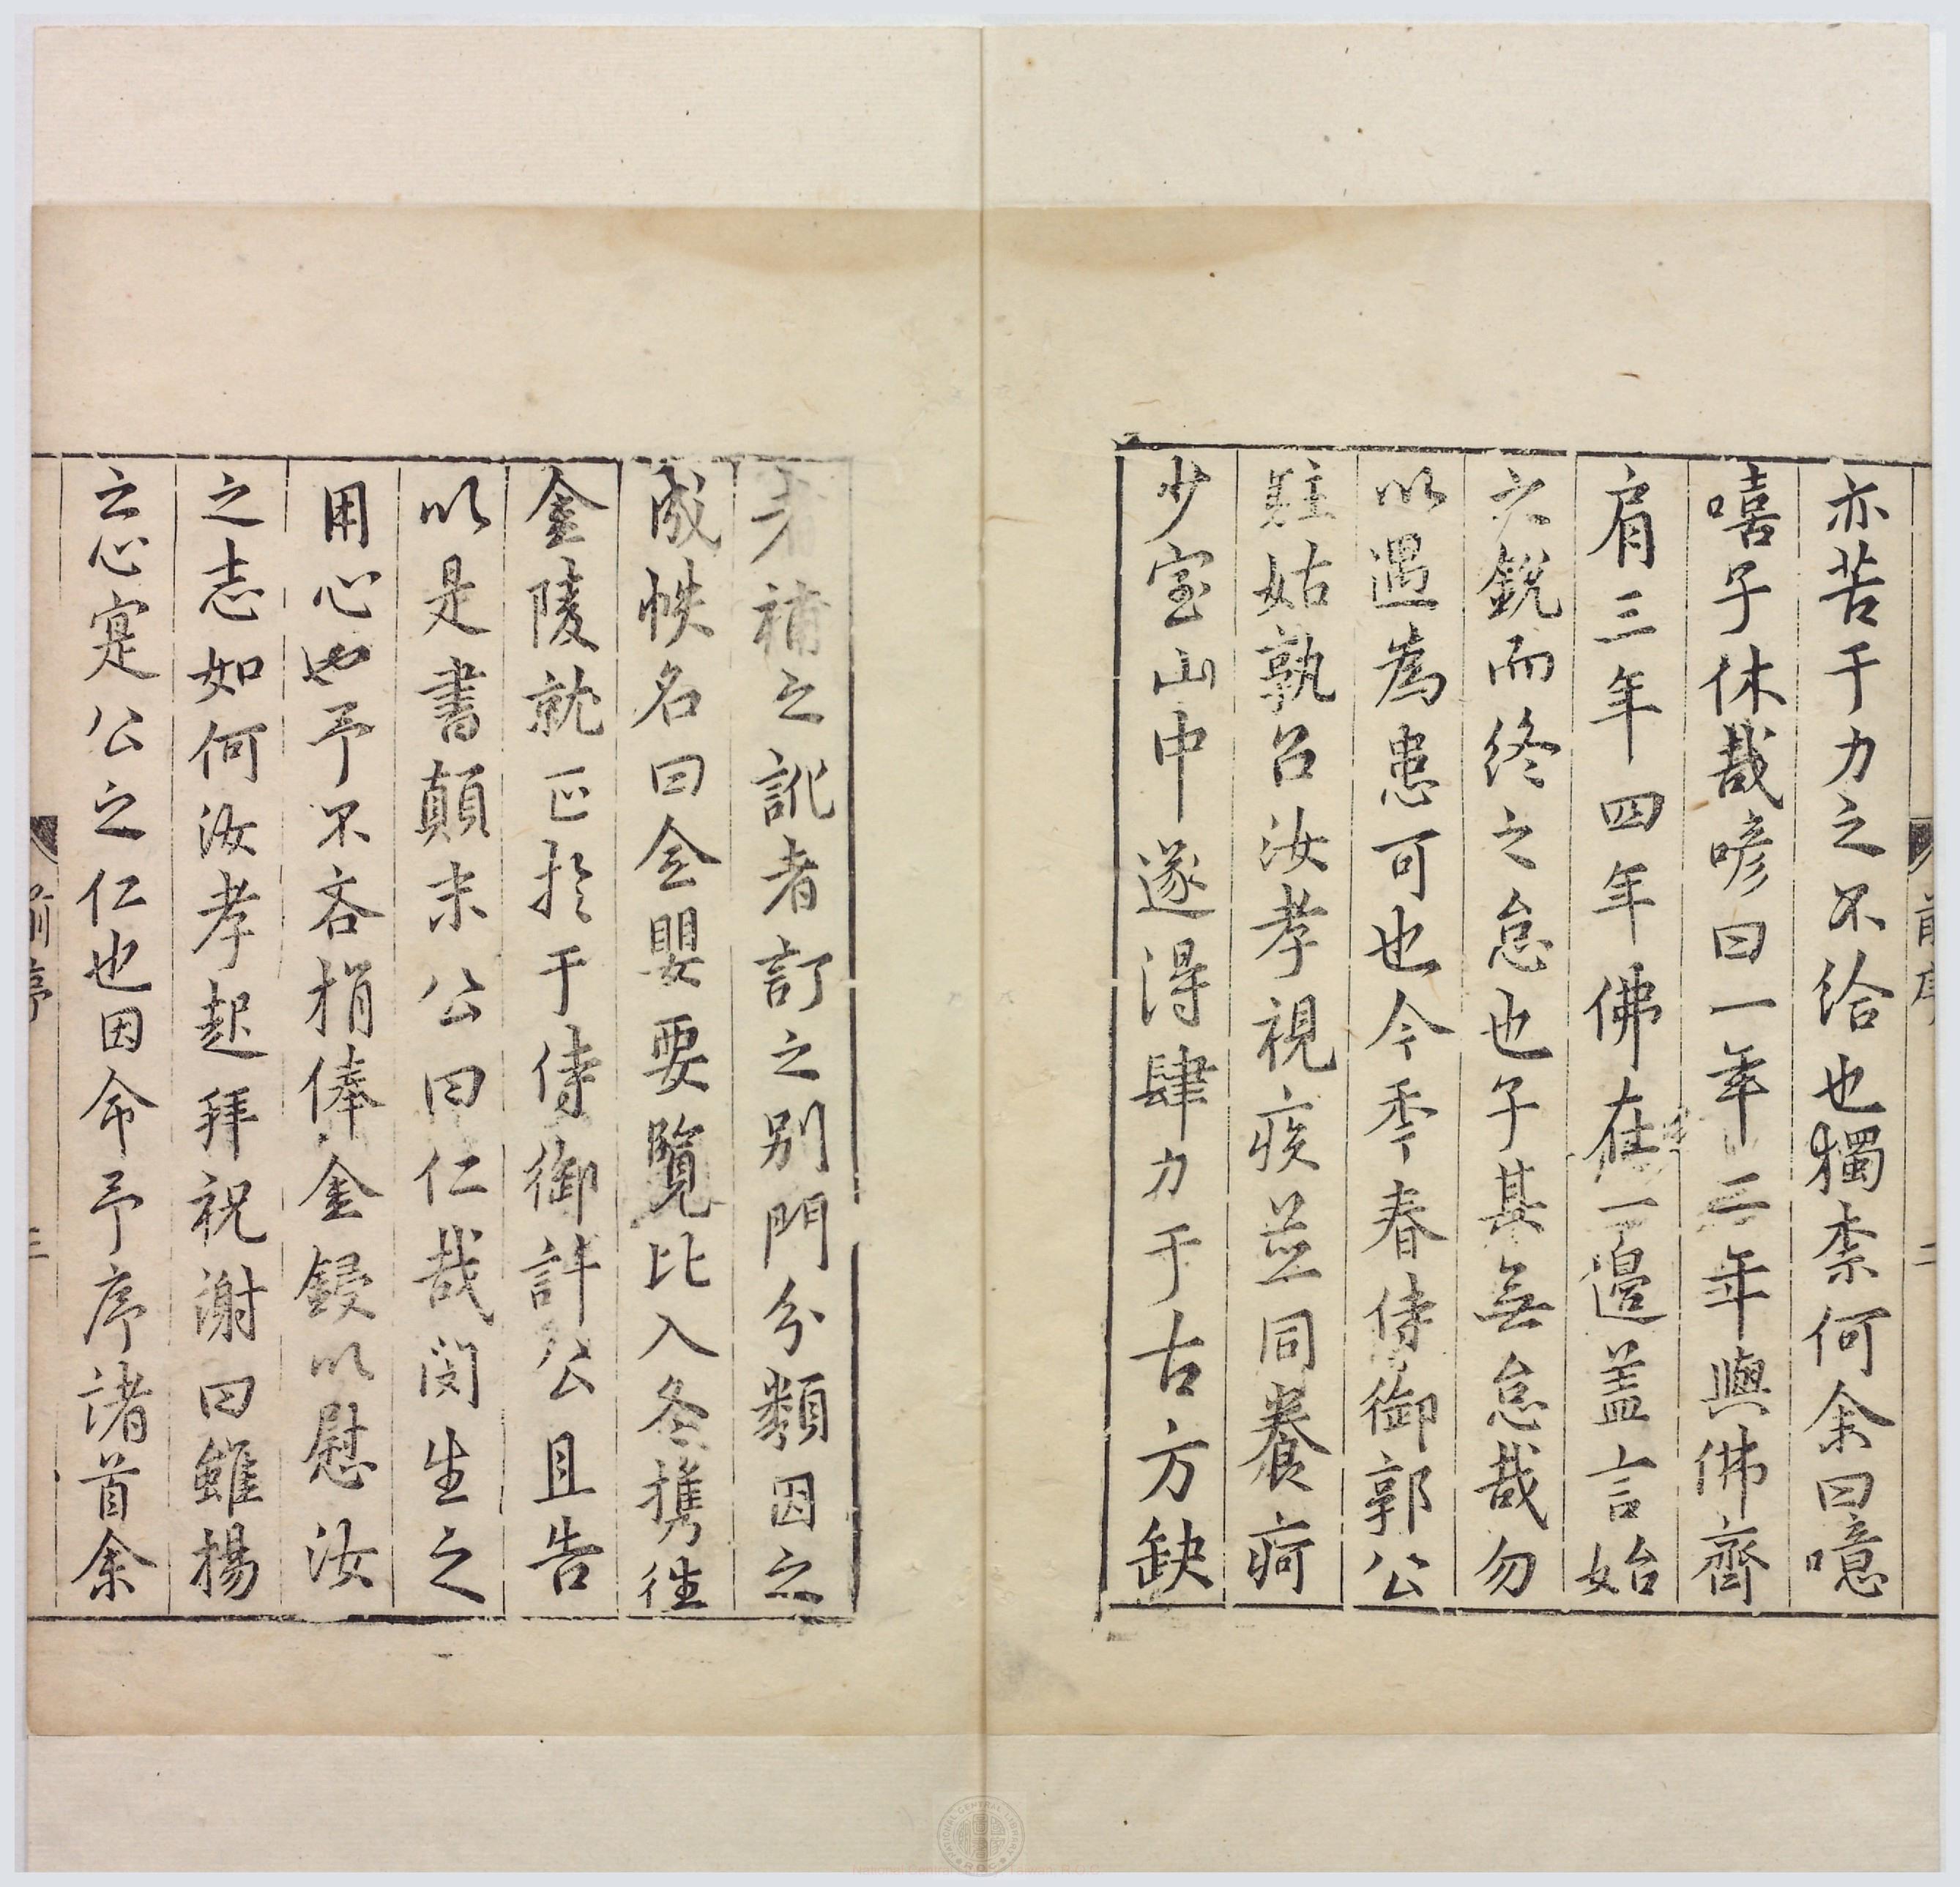 亦苦于力之不給也獨柰何余曰噫
嘻子休哉喭曰一年二年與佛齊
肩三年四年佛在一邉盖言始
之銳而終之怠也子其無怠哉勿
以遇為患可也今季春侍御郭公
駐姑孰召汝孝視疾並同養疴
少室山中遂得肆力于古方缺
者補之訛者訂之別門分類因之
成帙名曰全嬰要覽比入冬携徃
金陵就正扵于侍御許公且告
以是書顛末公曰仁哉閔生之
用心也予不吝捐俸金鋟以慰汝
之志如何汝孝起拜祝謝曰雖揚
之心寔公之仁也因命予序諸首余
前序
二
前序
三